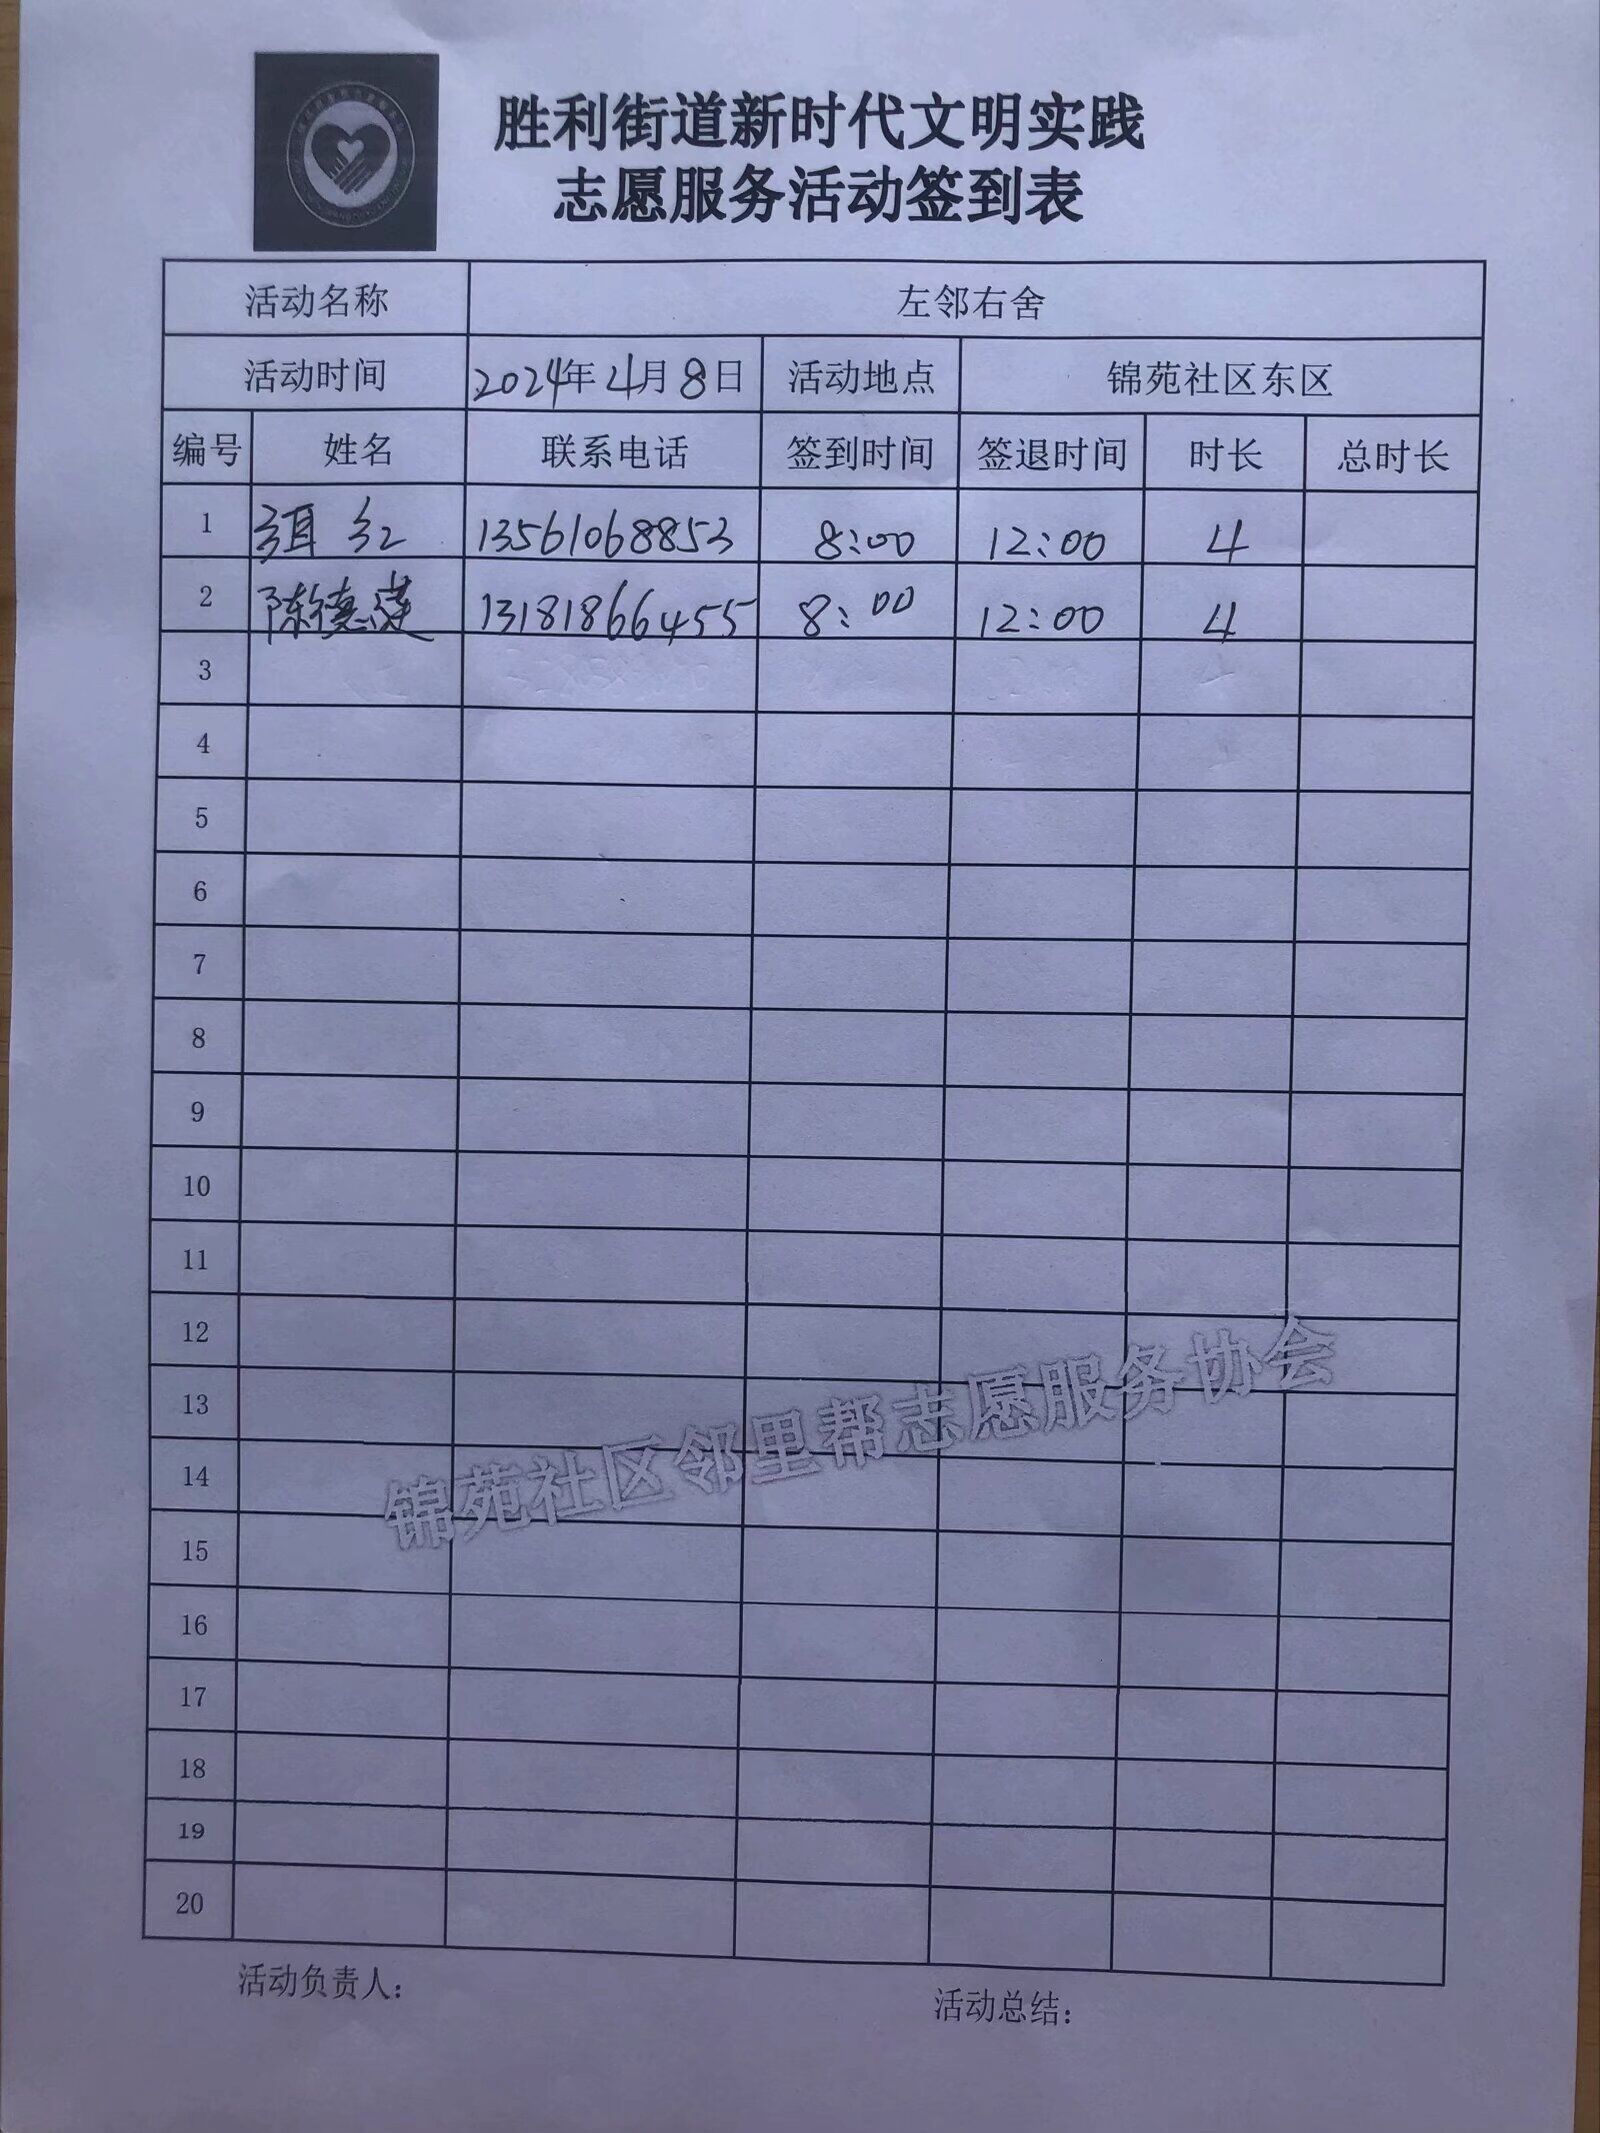 胜利街道新时代文明实践
志愿服务活动签到表
活动名称 左邻右舍
活动时间 2024年4月8日 活动地点 锦苑社区东区
编号 姓名 联系电话 签到时间 签退时间 时长 总时长
1 红 13561068853 8:00 12:00 4
2 陈德莲 13181866455 8:00 12:00 4
3
4
5
6
7
8
9
10
11
12
13
14
15
16
17
18
19
20
锦苑社区邻里帮志愿服务协会
活动负责人：
活动总结：